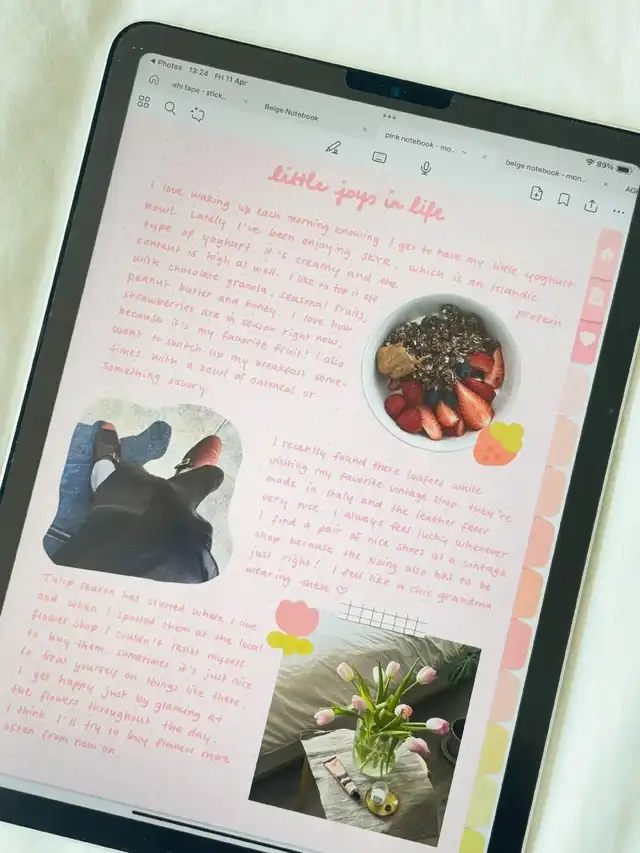 ◀ Photos 13:24 Fri 11 Apr
89%
ashi tape - stick...
Beige Notebook
pink notebook - mo...
beige notebook - mon...
little joys in life
I love waking up each morning knowing I get to have my little yoghurt
bowl. Lately I've been enjoying SKYR, which is an Islandic
type of yoghurt. It's creamy and the protein
content is high as well. I like to top it off
with chocolate granola, seasonal fruits,
peanut butter and honey. I love how
strawberries are in season right now,
because it's my favorite fruit! I also
want to switch up my breakfast some-
times with a bowl of oatmeal or
something savory.
I recently found these loafers while
visiting my favorite vintage shop. they're
made in Italy and the leather feels
very nice. I always feel lucky whenever
I find a pair of nice shoes at a vintage
shop because the sizing also has to be
just right! I feel like a chic grandma
wearing these ♡
Tulip season has started where I live
and when I spotted them at the local
flower shop I couldn't resist myself
to buy them. sometimes it's just nice
to treat yourself on things like these.
I get happy just by glancing at
the flowers throughout the day.
I think I'll try to buy flowers more
often from now on.